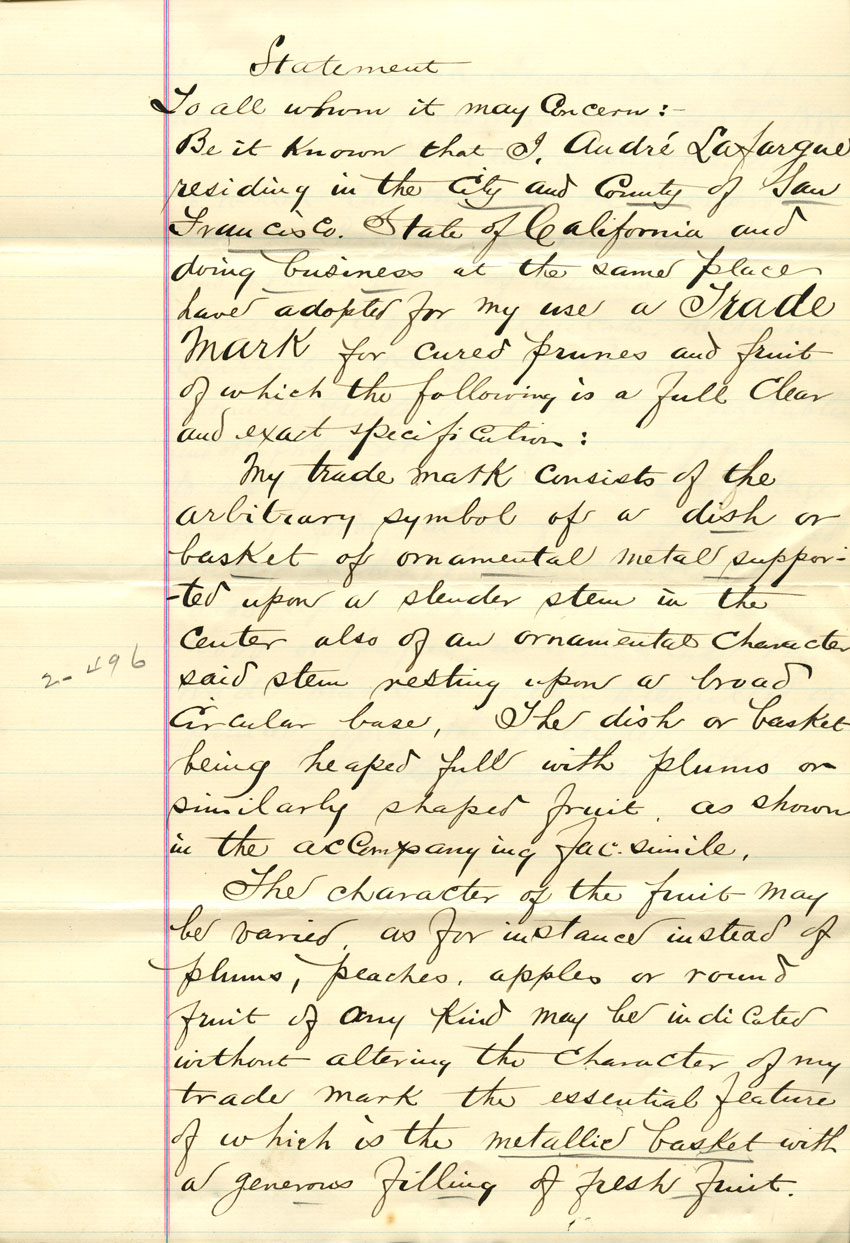 Statement
To all whom it may Concern:-
Be it Known that I, André Lafargue
residing in the City and County of San
Francisco. State of California and
doing business at the same place
have adopted for my use a Trade
Mark for cured prunes and fruit
of which the following is a full Clear
and exact specification:
My trade mark Consists of the
arbitrary symbol of a dish or
basket of ornamental metal suppor-
-ted upon a slender stem in the
Center also of an ornamental Character
2-496
said stem resting upon a broad
Circular base, The dish or basket
being heaped full with plums or
similarly shaped fruit, as shown
in the accompanying fac-simile.
The character of the fruit may
be varied, as for instance instead of
plums, peaches, apples or round
fruit of any Kind may be indicated
without altering the Character of my
trade mark the essential feature
of which is the metallic basket with
a generous filling of fresh fruit.